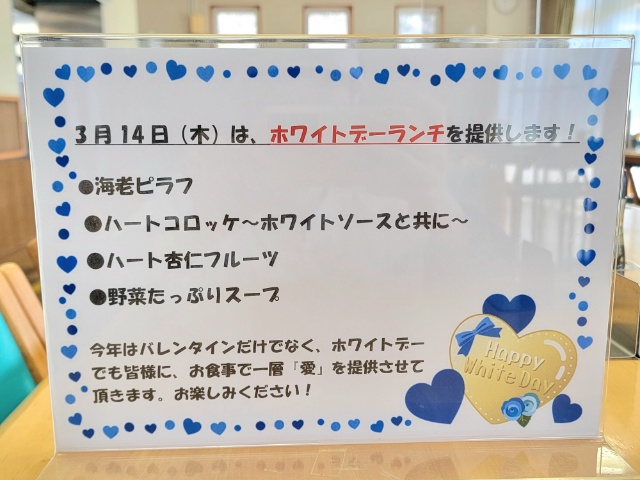 3月14日（木）は、ホワイトデーランチを提供します！
●海老ピラフ
●ハートコロッケ～ホワイトソースと共に～
●ハート杏仁フルーツ
●野菜たっぷりスープ
今年はバレンタインだけでなく、ホワイトデー
でも皆様に、お食事で一層「愛」を提供させて
頂きます。お楽しみください！
Happy
White Day